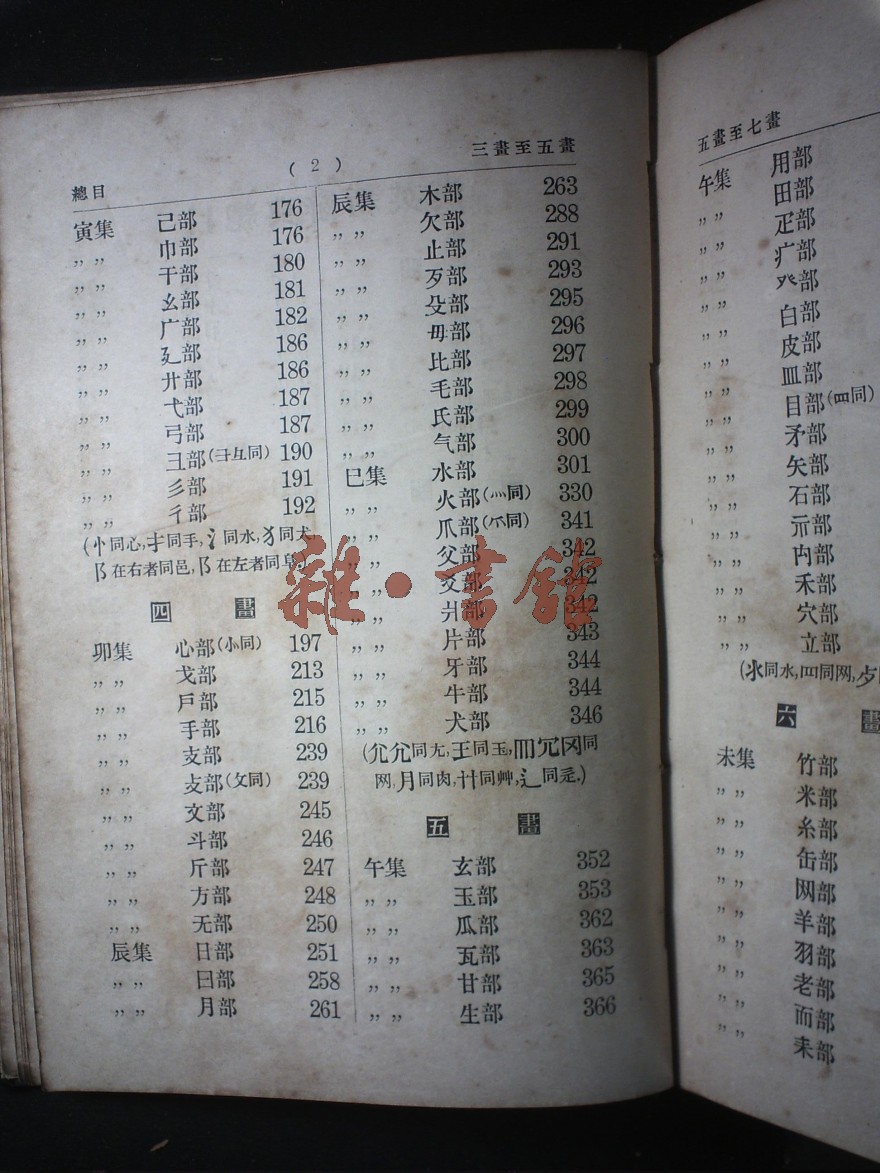 總目
( 2 )
三畫至五畫
寅集 己部 176
〃〃 巾部 176
〃〃 干部 180
〃〃 幺部 181
〃〃 广部 182
〃〃 廴部 186
〃〃 廾部 186
〃〃 弋部 187
〃〃 弓部 187
〃〃 彐部(彐彑同) 190
〃〃 彡部 191
〃〃 彳部 192
(忄同心,扌同手,氵同水,犭同犬,
阝在右者同邑,阝在左者同阜.)
四 畫
卯集 心部(㣺同) 197
〃〃 戈部 213
〃〃 戶部 215
〃〃 手部 216
〃〃 支部 239
〃〃 攴部(攵同) 239
〃〃 文部 245
〃〃 斗部 246
〃〃 斤部 247
〃〃 方部 248
〃〃 无部 250
辰集 日部 251
〃〃 曰部 258
〃〃 月部 261
辰集 木部 263
〃〃 欠部 288
〃〃 止部 291
〃〃 歹部 293
〃〃 殳部 295
〃〃 毋部 296
〃〃 比部 297
〃〃 毛部 298
〃〃 氏部 299
〃〃 气部 300
巳集 水部 301
〃〃 火部(灬同) 330
〃〃 爪部(爫同) 341
〃〃 父部 342
〃〃 爻部 342
〃〃 爿部 342
〃〃 片部 343
〃〃 牙部 344
〃〃 牛部 344
〃〃 犬部 346
(尣尢同尢,王同玉,罒冗冈同
网,月同肉,艹同艸,辶同辵.)
五 畫
午集 玄部 352
〃〃 玉部 353
〃〃 瓜部 362
〃〃 瓦部 363
〃〃 甘部 365
〃〃 生部 366
五畫至七畫
午集 用部
〃〃 田部
〃〃 疋部
〃〃 疒部
〃〃 癶部
〃〃 白部
〃〃 皮部
〃〃 皿部
〃〃 目部(罒同)
〃〃 矛部
〃〃 矢部
〃〃 石部
〃〃 示部
〃〃 禸部
〃〃 禾部
〃〃 穴部
〃〃 立部
(氺同水,罒同网,歺
六 畫
未集 竹部
〃〃 米部
〃〃 糸部
〃〃 缶部
〃〃 网部
〃〃 羊部
〃〃 羽部
〃〃 老部
〃〃 而部
〃〃 耒部
雜·書館